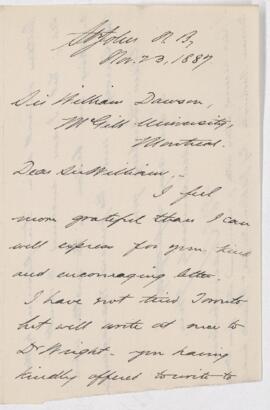 St John N.B,
Nov. 23, 1887
Sir William Dawson,
McGill University,
Montreal.
Dear Sir William,-
I feel
more grateful than I can
well express for your kind
and encouraging letter.
I have not tried Toronto
but will write at once to
Dr Wright - you having
kindly offered to write to